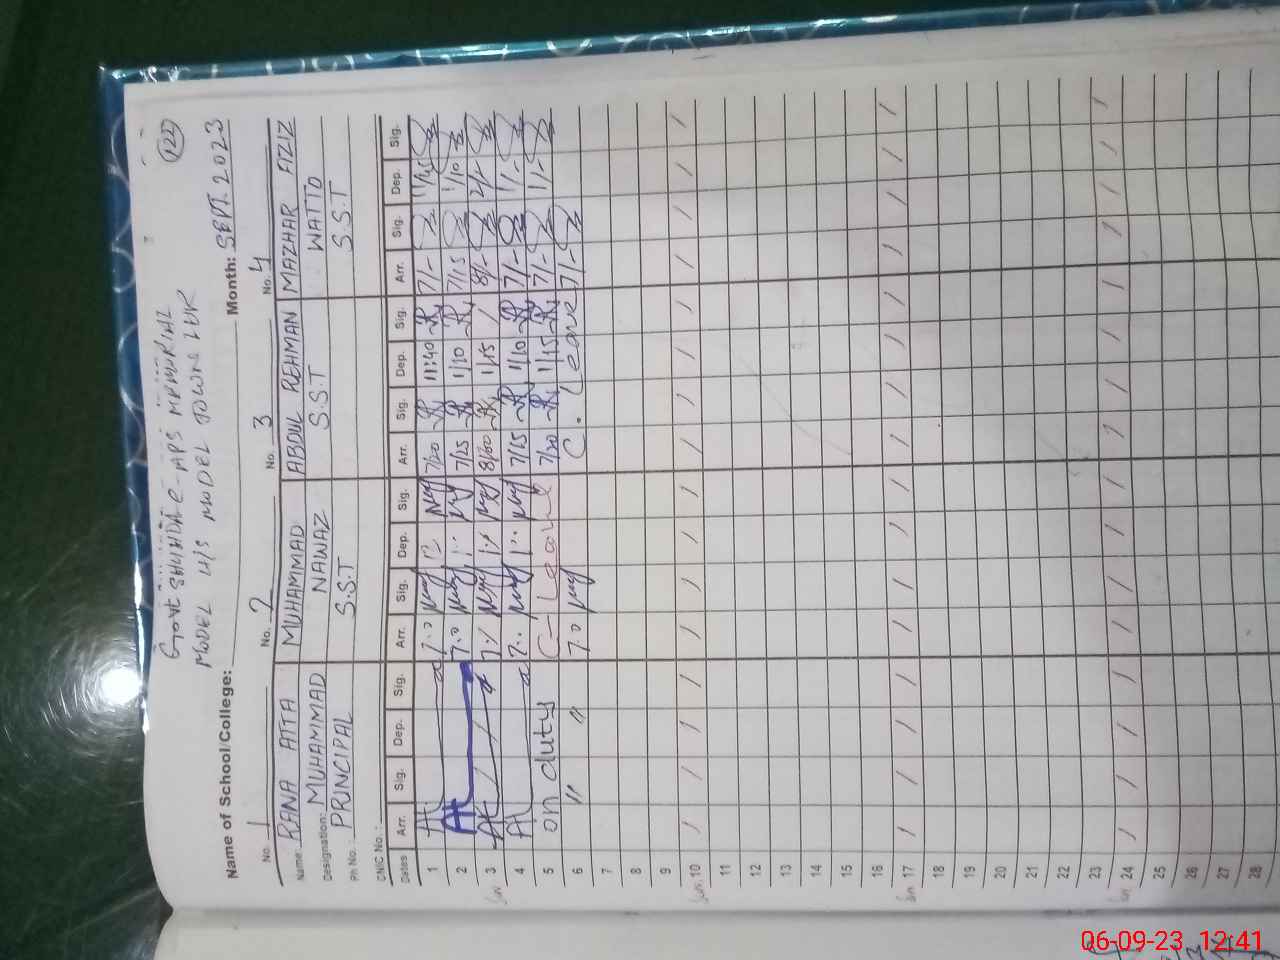 122
Govt SHUHDA-E-APS MEMORIAL
Name of School/College: MODEL H/S MODEL TOWN LHR Month: SEPT. 2023
No. 1 No. 2 No. 3 No. 4
Name: RANA ATTA MUHAMMAD ABDUL REHMAN MAZHAR AZIZ
Designation: MUHAMMAD NAWAZ S.S.T WATTO
Ph No.: PRINCIPAL S.S.T S.S.T
CNIC No.:
Dates Arr. Sig. Dep. Sig. Arr. Sig. Dep. Sig. Arr. Sig. Dep. Sig. Arr. Sig. Dep. Sig.
1 7.0 7/20 11:40 7/-
2 7.0 7/25 1/10 7/15 1/10
Sun 3 1/15 8/-
4 7/15 1/10 7/- 1/-
5 on duty C-Leave 7/20 1/15 7/- 1/-
6 " " 7.0 C. Leave 7/-
7
8
9
Sun. 10
11
12
13
14
15
16
Sun 17
18
19
20
21
22
23
Sun 24
25
26
27
28
06-09-23 12:41